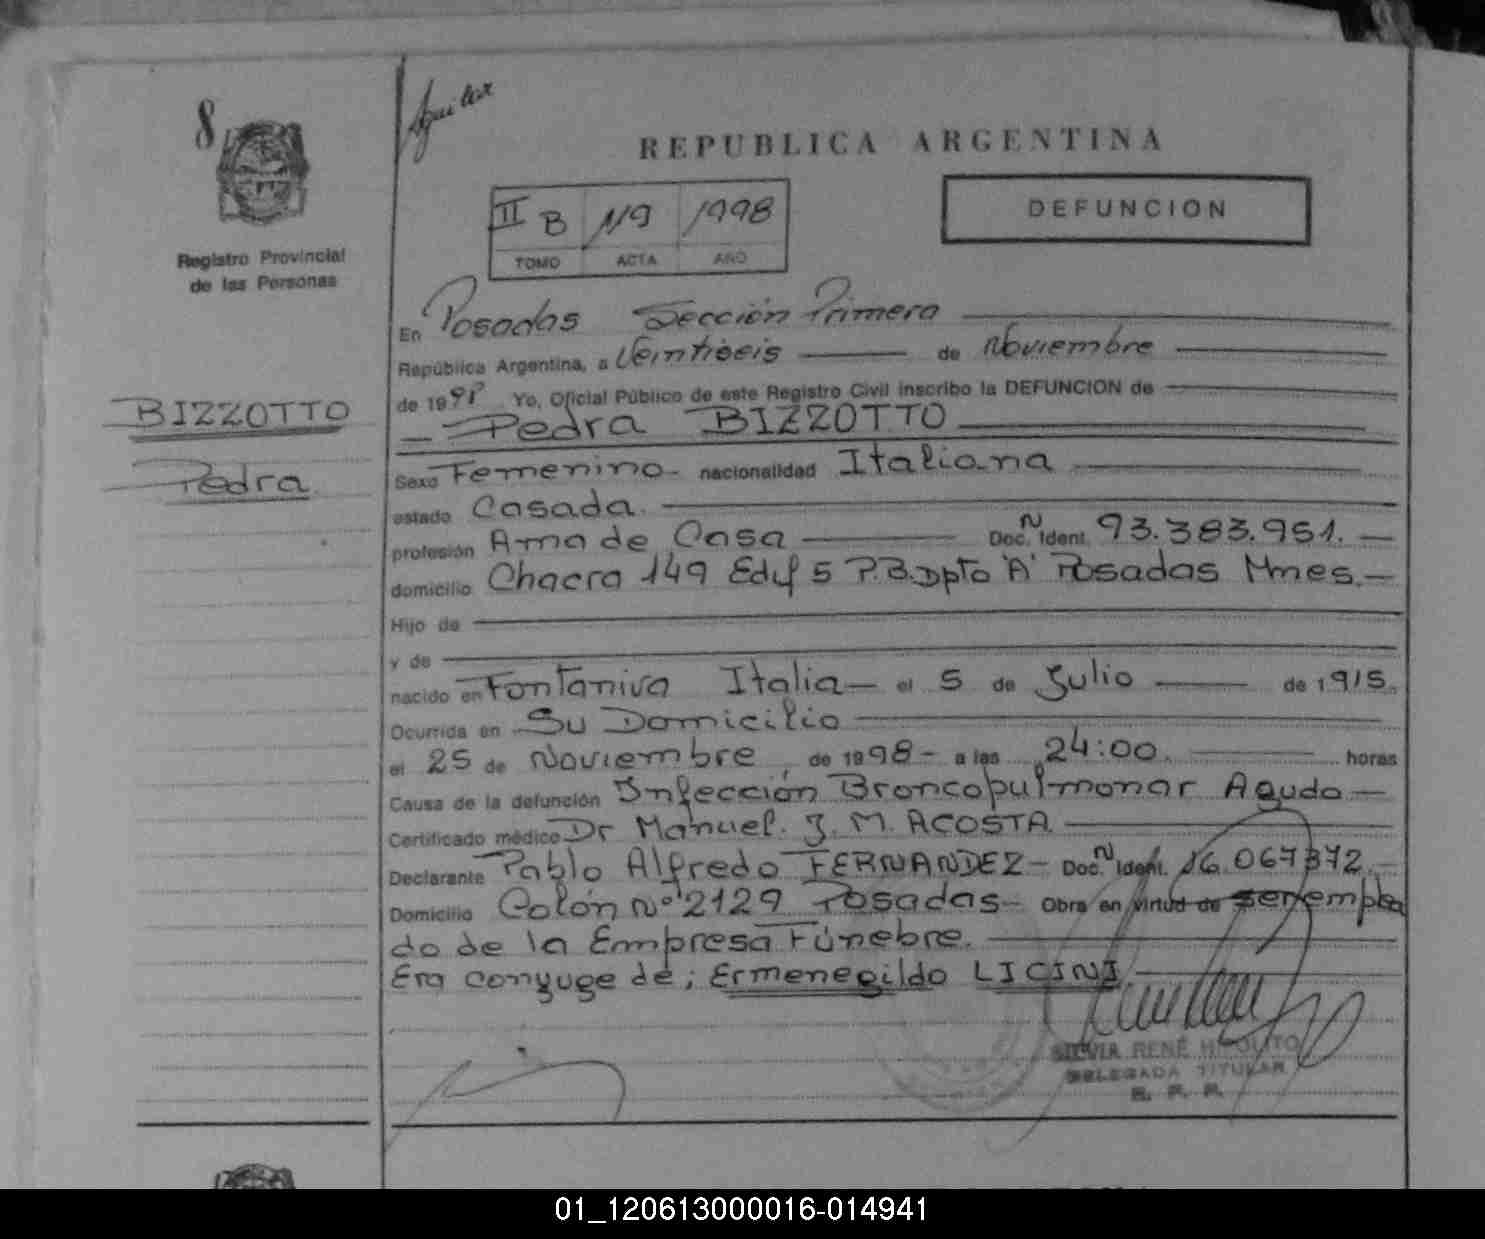 8
Aguilar
REPUBLICA ARGENTINA
II B 119 1998
TOMO ACTA AÑO
DEFUNCION
Registro Provincial
de las Personas
BIZZOTTO
Pedra
En Posadas Sección Primera
República Argentina, a Veintiseis de Noviembre
de 1998 Yo, Oficial Público de este Registro Civil inscribo la DEFUNCION de
Pedra BIZZOTTO
Sexo Femenino - nacionalidad Italiana
estado Casada.
profesión Ama de Casa Doc. N Ident. 93.383.951.-
domicilio Chacra 149 Edif 5 P.B. Dpto "A" Posadas Mnes.-
Hijo de
y de
nacido en Fontaniva Italia - el 5 de Julio de 1915.
Ocurrida en Su Domicilio
el 25 de Noviembre de 1998 - a las 24:00. horas
Causa de la defunción Infección Broncopulmonar Aguda -
Certificado médico Dr Manuel. J. M. ACOSTA
Declarante Pablo Alfredo FERNANDEZ - Doc. N Ident. 16.067372.-
Domicilio Colón Nº 2129 Posadas - Obra en virtud de ser emplea
do de la Empresa Fúnebre.
Era conyuge de; Ermenegildo LICINI
SILVIA RENÉ HIPOLITO
DELEGADA TITULAR
R. P. P.
01_120613000016-014941